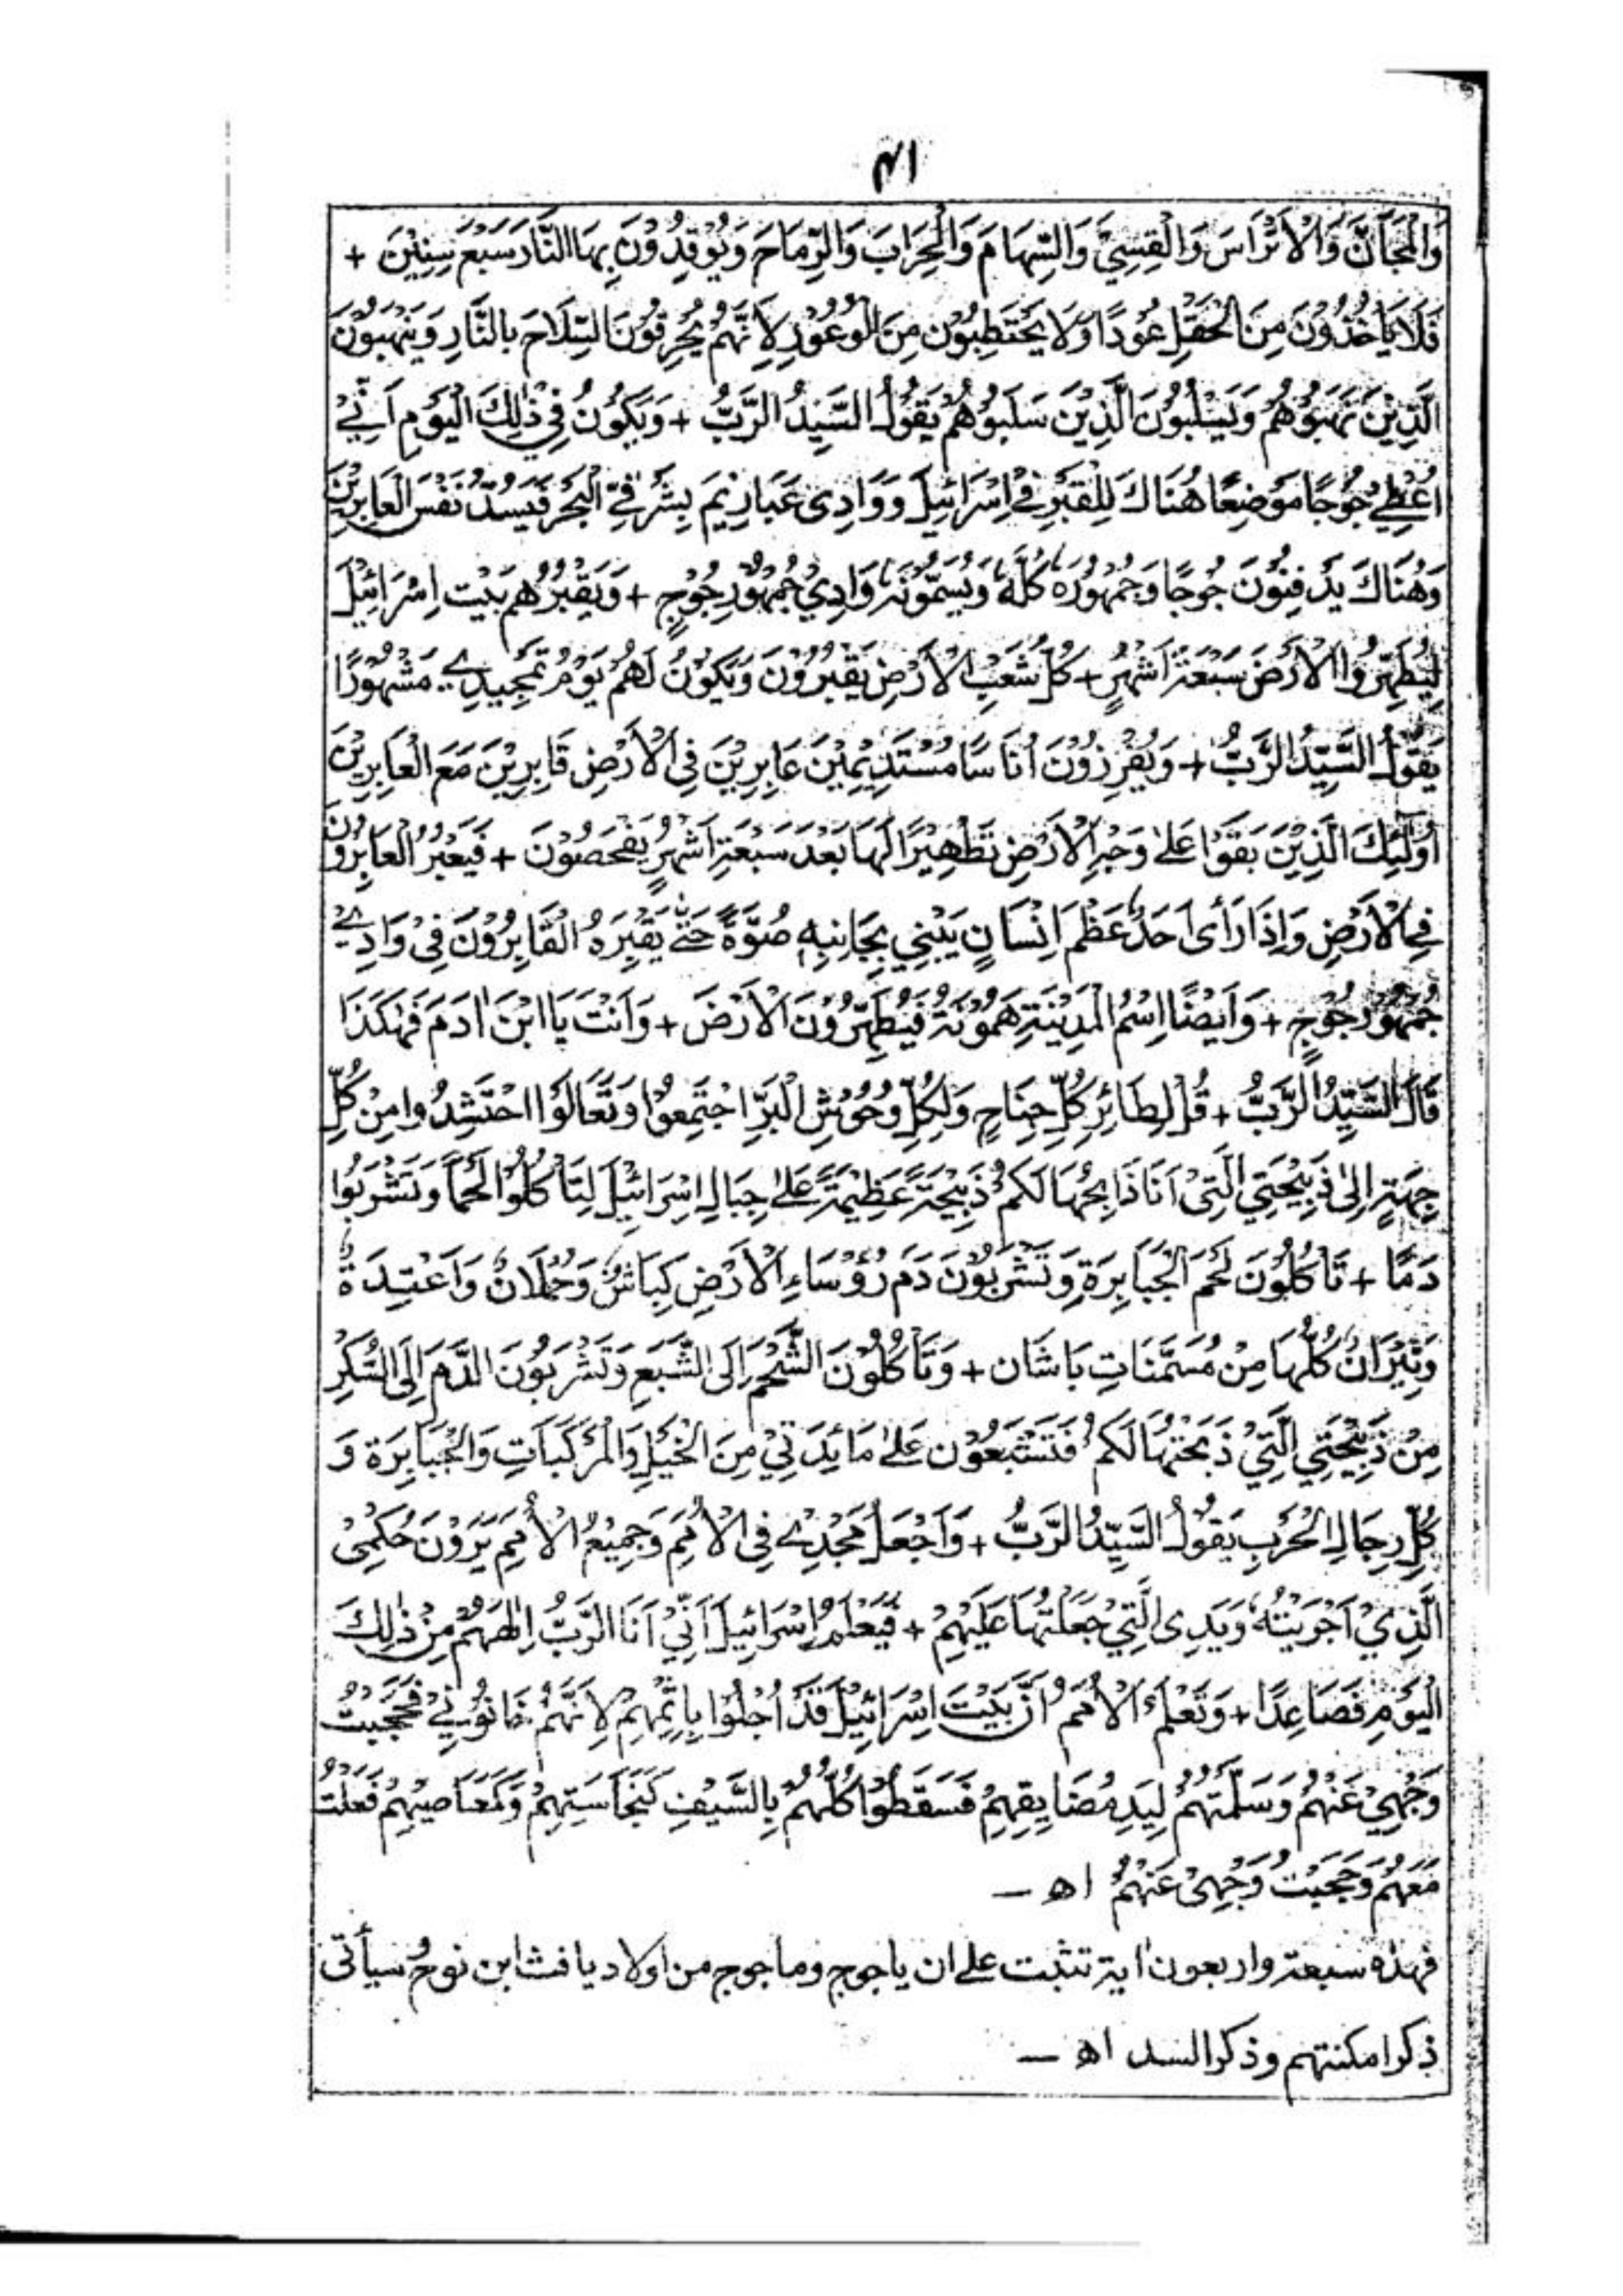 ۴۱
وَالْمَجَانَّ وَالْاَتْرَاسَ وَالْقِسِيَّ وَالسِّهَامَ وَالْحِرَابَ وَالرِّمَاحَ وَيُوْقِدُوْنَ بِهَا النَّارَ سَبْعَ سِنِيْنَ +
فَلَا يَأْخُذُوْنَ مِنَ الْحَقْلِ عُوْدًا وَلَا يَحْتَطِبُوْنَ مِنَ الْوُعُوْرِ لِاَنَّهُمْ يُحْرِقُوْنَ السِّلَاحَ بِالنَّارِ وَيَنْهَبُوْنَ
الَّذِيْنَ نَهَبُوْهُمْ وَيَسْلُبُوْنَ الَّذِيْنَ سَلَبُوْهُمْ يَقُوْلُ السَّيِّدُ الرَّبُّ + وَيَكُوْنُ فِيْ ذٰلِكَ الْيَوْمِ اَنِّيْ
اُعْطِيْ جُوْجًا مَوْضِعًا هُنَاكَ لِلْقَبْرِ فِيْ اِسْرَائِيْلَ وَوَادِى عَبَارِيْمَ بِشَرْقِيِّ الْبَحْرِ فَيَسُدُّ نَفْسَ الْعَابِرِيْنَ
وَهُنَاكَ يَدْفِنُوْنَ جُوْجًا وَجُمْهُوْرَهٗ كُلَّهٗ وَيُسَمُّوْنَهٗ وَادِيْ جُمْهُوْرِ جُوْجٍ + وَيَقْبُرُهُمْ بَيْتُ اِسْرَائِيْلَ
لِيُطَهِّرُوا الْاَرْضَ سَبْعَةَ اَشْهُرٍ + كُلُّ شَعْبِ الْاَرْضِ يَقْبُرُوْنَ وَيَكُوْنُ لَهُمْ يَوْمُ تَمْجِيْدِيْ مَشْهُوْرًا
يَقُوْلُ السَّيِّدُ الرَّبُّ + وَيُفْرِزُوْنَ اُنَاسًا مُسْتَدِيْمِيْنَ عَابِرِيْنَ فِي الْاَرْضِ قَابِرِيْنَ مَعَ الْعَابِرِيْنَ
اُولٰئِكَ الَّذِيْنَ بَقَوْا عَلٰى وَجْهِ الْاَرْضِ تَطْهِيْرًا لَهَا بَعْدَ سَبْعَةِ اَشْهُرٍ يَفْحَصُوْنَ + فَيَعْبُرُ الْعَابِرُوْنَ
فِي الْاَرْضِ وَاِذَا رَأى اَحَدٌ عَظْمَ اِنْسَانٍ يَبْنِي بِجَانِبِهٖ صُوَّةً حَتّٰى يَقْبِرَهُ الْقَابِرُوْنَ فِيْ وَادِيْ
جُمْهُوْرِ جُوْجٍ + وَاَيْضًا اِسْمُ الْمَدِيْنَةِ هَمُوْنَةُ فَيُطَهِّرُوْنَ الْاَرْضَ + وَاَنْتَ يَا ابْنَ اٰدَمَ فَهٰكَذَا
قَالَ السَّيِّدُ الرَّبُّ + قُلْ لِطَائِرِ كُلِّ جَنَاحٍ وَلِكُلِّ وُحُوْشِ الْبَرِّ اجْتَمِعُوْا وَتَعَالَوْا احْتَشِدُوا مِنْ كُلِّ
جِهَةٍ اِلٰى ذَبِيْحَتِي الَّتِيْ اَنَا ذَابِحُهَا لَكُمْ ذَبِيْحَةً عَظِيْمَةً عَلٰى جِبَالِ اِسْرَائِيْلَ لِتَأْكُلُوْا لَحْمًا وَتَشْرَبُوْا
دَمًا + تَأْكُلُوْنَ لَحْمَ الْجَبَابِرَةِ وَتَشْرَبُوْنَ دَمَ رُؤَسَاءِ الْاَرْضِ كِبَاشٌ وَحُمْلَانٌ وَاَعْتِدَةٌ
وَثِيْرَانٌ كُلُّهَا مِنْ مُسَمَّنَاتِ بَاشَان + وَتَأْكُلُوْنَ الشَّحْمَ اِلَى الشَّبَعِ وَتَشْرَبُوْنَ الدَّمَ اِلَى السُّكْرِ
مِنْ ذَبِيْحَتِي الَّتِيْ ذَبَحْتُهَا لَكُمْ فَتَشْبَعُوْنَ عَلٰى مَائِدَتِيْ مِنَ الْخَيْلِ وَالْمَرْكَبَاتِ وَالْجَبَابِرَةِ وَ
كُلِّ رِجَالِ الْحَرْبِ يَقُوْلُ السَّيِّدُ الرَّبُّ + وَاَجْعَلُ مَجْدِيْ فِي الْاُمَمِ وَجَمِيْعُ الْاُمَمِ يَرَوْنَ حُكْمِيْ
الَّذِيْ اَجْرَيْتُهٗ وَيَدِى الَّتِيْ جَعَلْتُهَا عَلَيْهِمْ + فَيَعْلَمُ اِسْرَائِيْلُ اَنِّيْ اَنَا الرَّبُّ اِلٰهُهُمْ مِنْ ذٰلِكَ
الْيَوْمِ فَصَاعِدًا + وَتَعْلَمُ الْاُمَمُ اَنَّ بَيْتَ اِسْرَائِيْلَ قَدْ اُجْلُوْا بِاِثْمِهِمْ لِاَنَّهُمْ خَانُوْنِيْ فَحَجَبْتُ
وَجْهِيْ عَنْهُمْ وَسَلَّمْتُهُمْ لِيَدِ مُضَايِقِهِمْ فَسَقَطُوْا كُلُّهُمْ بِالسَّيْفِ كَنَجَاسَتِهِمْ وَكَمَعَاصِيْهِمْ فَعَلْتُ
مَعَهُمْ وَحَجَبْتُ وَجْهِيْ عَنْهُمْ اھ —
فهذه سبعة واربعون اية تثبت على ان ياجوج وماجوج من اولاد يافث ابن نوحؑ سيأتى
ذكر امكنتهم وذكر السد اھ —